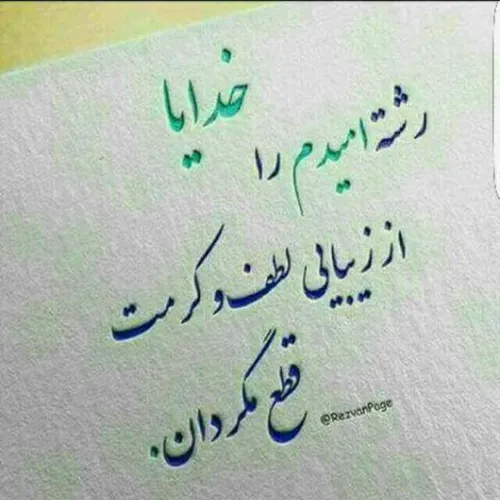 خدایا
رشتهٔ امیدم را
از زیبایی لطف و کرمت
قطع مگردان.
@RezvanPage